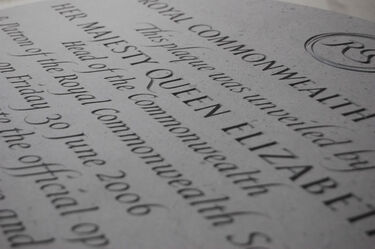 ROYAL COMMONWEALTH
RS
This plaque was unveiled by
HER MAJESTY QUEEN ELIZABETH
Head of the Commonwealth
Patron of the Royal Commonwealth
on Friday 30 June 2006
to the official op
and